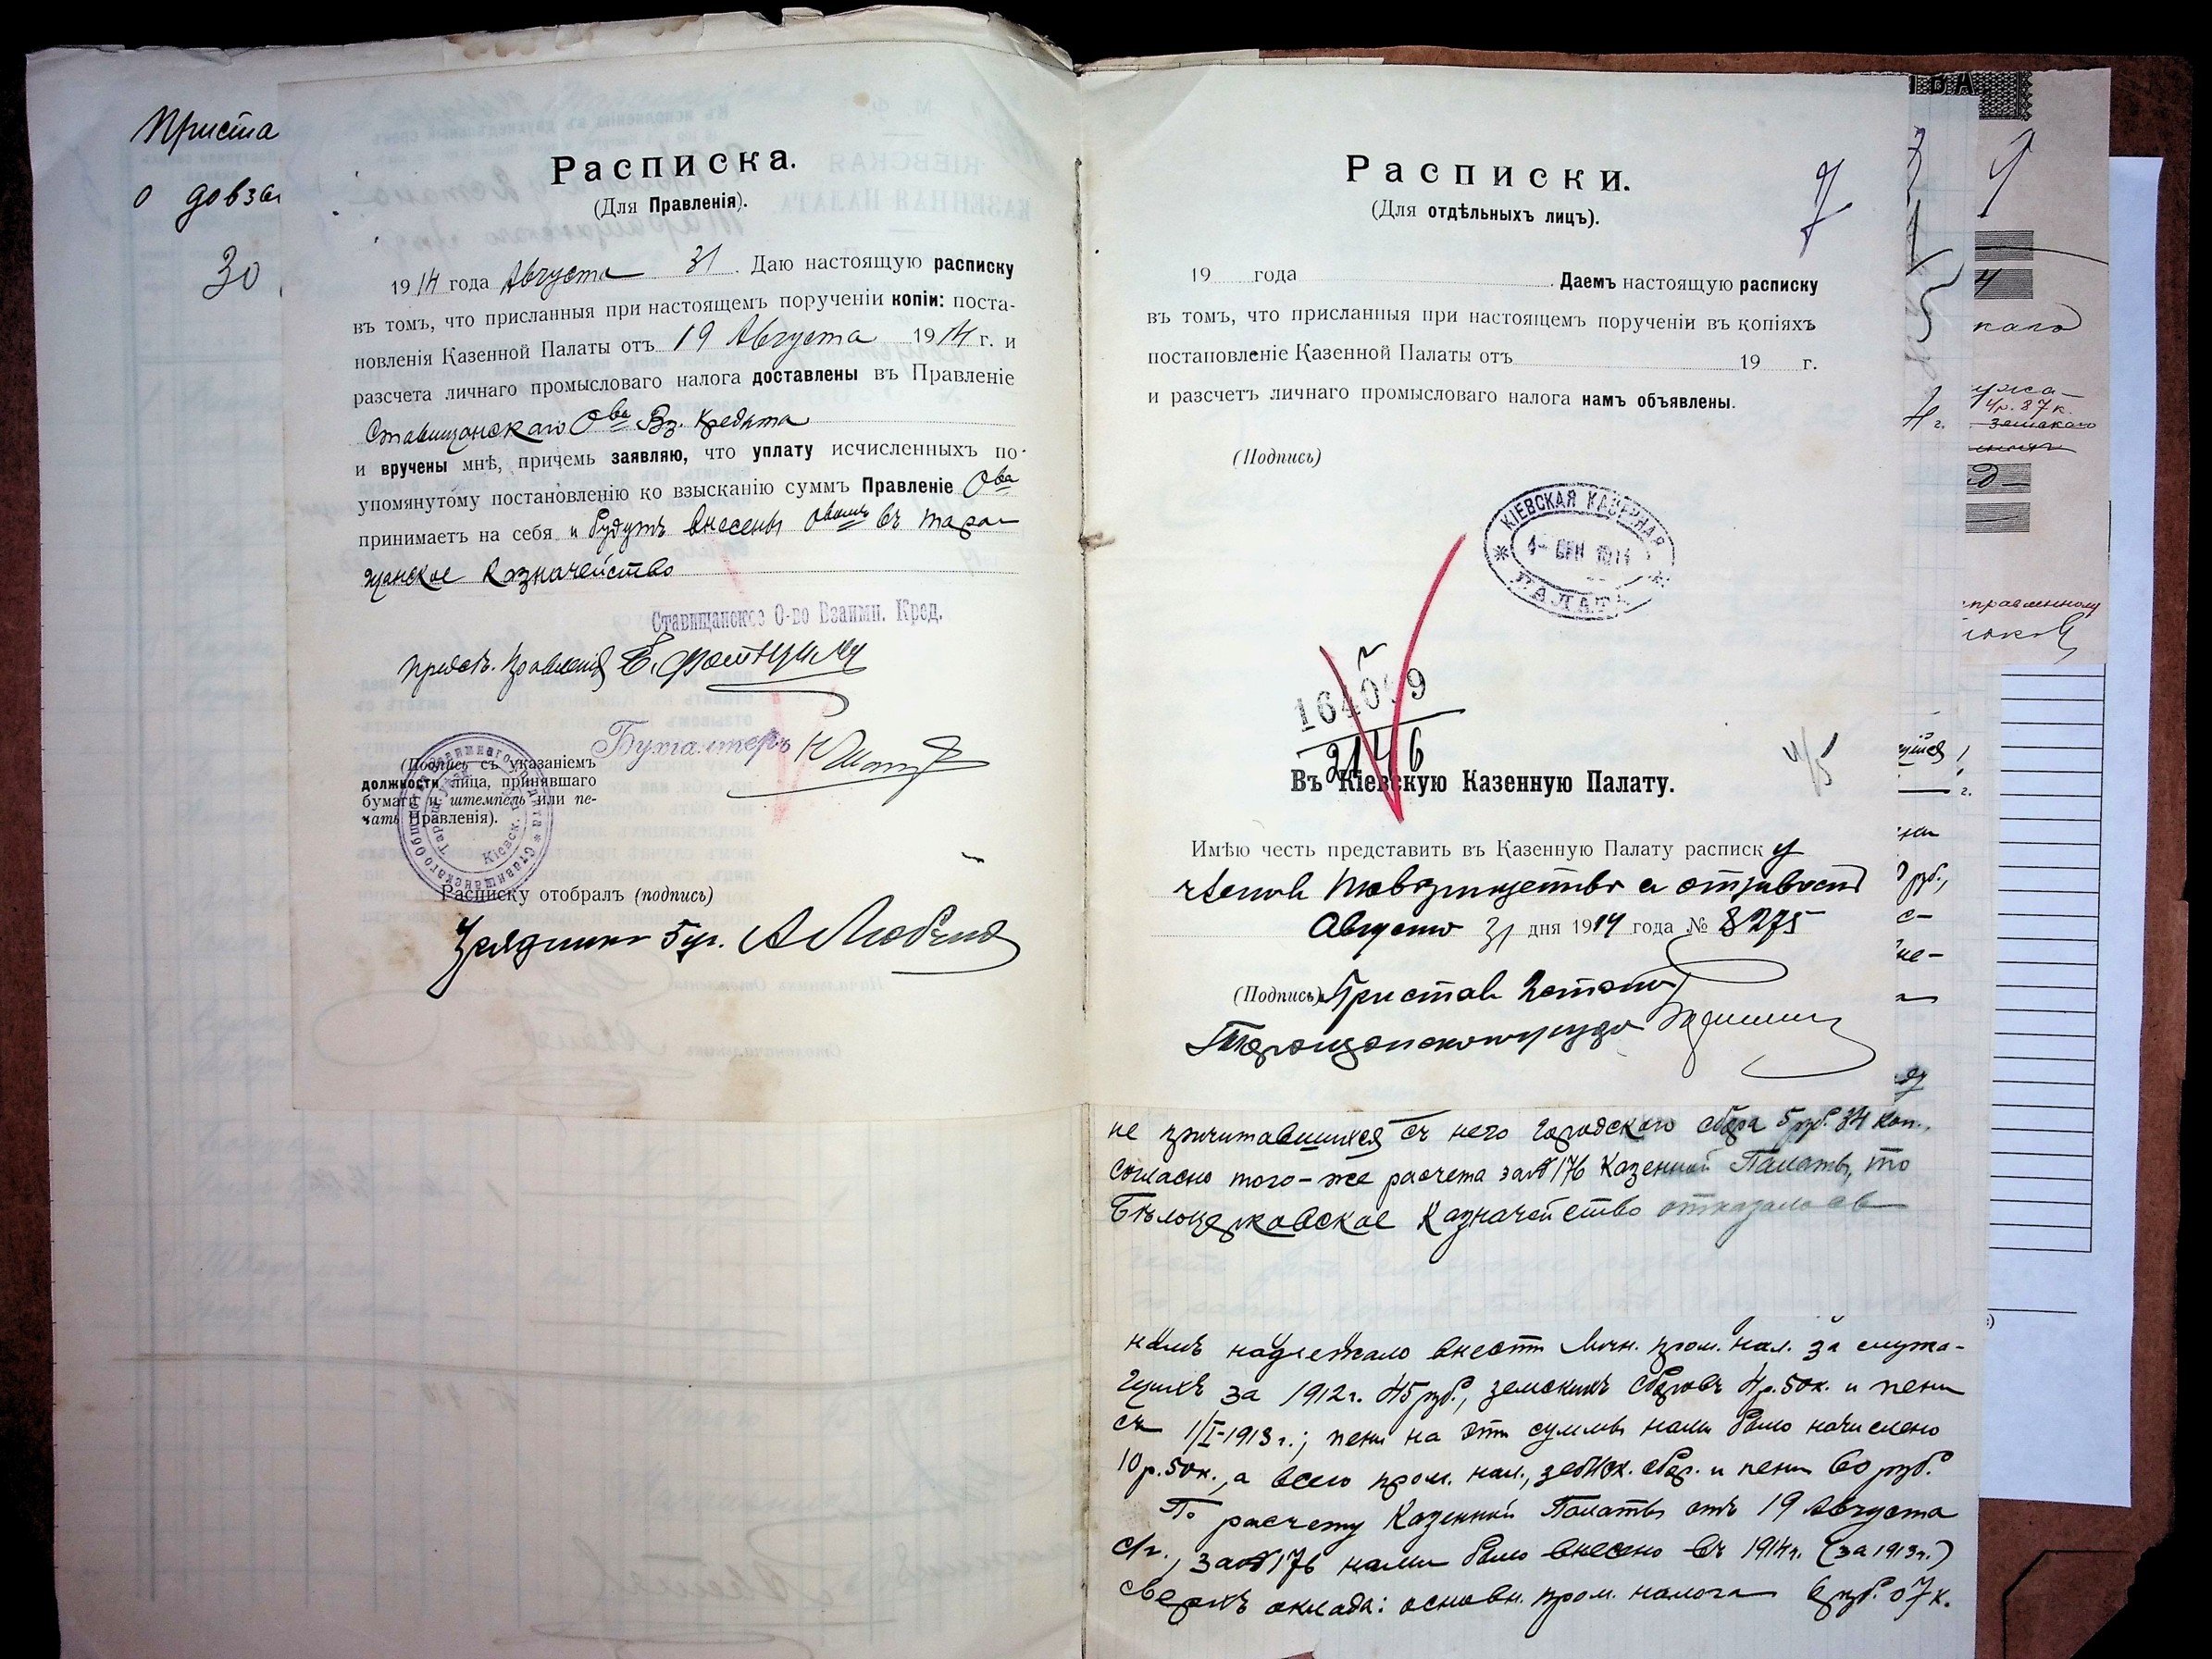 Приста
о довзы
30
Расписка.
(Для Правленія).
1914 года Августа 31. Даю настоящую расписку
въ томъ, что присланныя при настоящемъ порученіи копіи: поста-
новленія Казенной Палаты отъ 19 Августа 1914 г. и
разсчета личнаго промысловаго налога доставлены въ Правленіе
Ставищанскаго О-ва Вз. Кредита
и вручены мнѣ, причемъ заявляю, что уплату исчисленныхъ по
упомянутому постановленію ко взысканію суммъ Правленіе О-ва
принимаетъ на себя и будутъ внесены О-вомъ въ Тара-
щанское Казначейство
Ставищанское О-во Взаимн. Кред.
Предс. Правленія
Бухгалтеръ
(Подпись съ указаніемъ
должности лица, принявшаго
бумаги и штемпель или пе-
чать Правленія).
Расписку отобралъ (подпись)
Урядникъ 5 уч.
Расписки.
7
(Для отдѣльныхъ лицъ).
19 года . Даемъ настоящую расписку
въ томъ, что присланныя при настоящемъ порученіи въ копіяхъ
постановленіе Казенной Палаты отъ 19 г.
и разсчетъ личнаго промысловаго налога намъ объявлены.
(Подпись)
КІЕВСКАЯ КАЗЕННАЯ
ПАЛАТА
2146
Въ Кіевскую Казенную Палату.
Имѣю честь представить въ Казенную Палату расписку
Августа 31 дня 1914 года № 8275
(Подпись) Приставъ 2 стана
Таращанскаго уѣзда
не причитавшихся съ него городского сбора 5 руб. 34 коп.,
согласно того-же расчета за № 176 Казенной Палаты, то
Бѣлоцерковское Казначейство отказалось
намъ надлежало внести личн. пром. нал. за служа-
щихъ за 1912 г. 45 руб., земскихъ сборовъ 4 р. 50 к. и пени
съ 1/I-1913 г.; пени на эти суммы нами было начислено
10 р. 50 к., а всего пром. нал., земск. сбор. и пени 60 руб.
По расчету Казенной Палаты отъ 19 Августа
с/г., за № 176 нами было внесено въ 1914 г. (за 1913 г.)
сверхъ оклада: основн. пром. налога